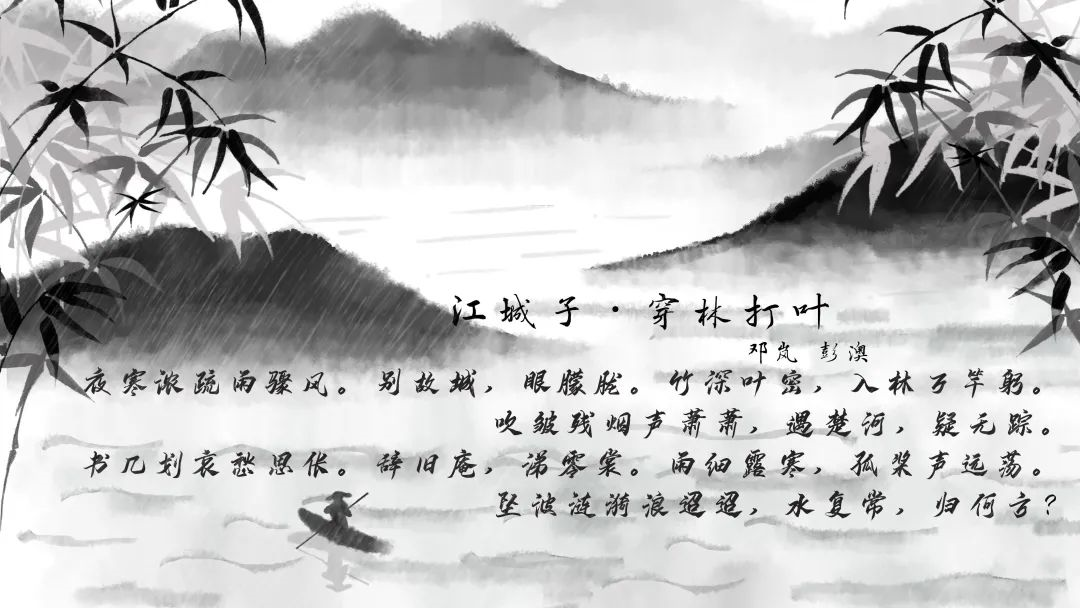 江城子·穿林打叶
邓岚 彭澳
夜寒浓疏雨骤风。别故城，眼朦胧。竹深叶密，入林万竿躬。
吹皱残烟声萧萧，遇楚河，疑无踪。
书几划哀愁思怅。辞旧庵，涕零裳。雨细露寒，孤桨声远荡。
坠波涟漪浪迢迢，水复常，归何方？